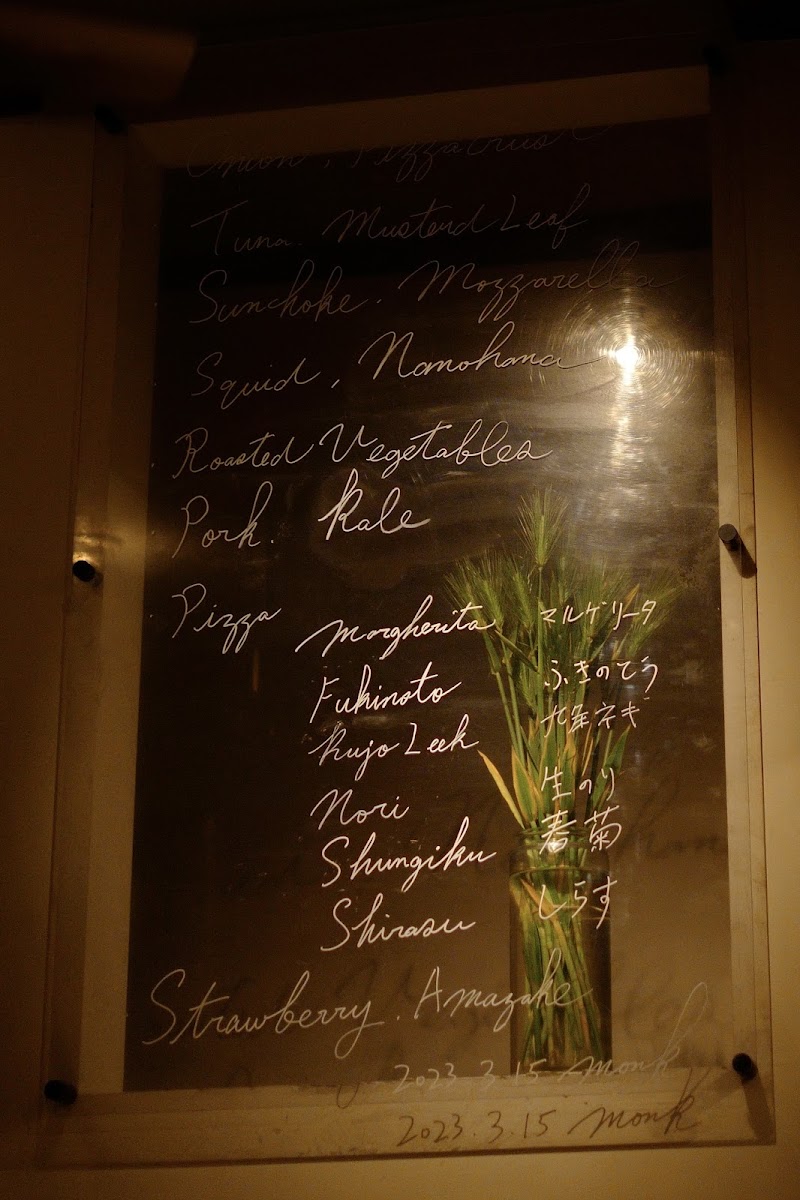 Onion, Pizza crust
Tuna. Mustard Leaf
Sunchoke. Mozzarella
Squid, Nanohana
Roasted Vegetables
Pork. Kale
Pizza
Margherita マルゲリータ
Fukinoto ふきのとう
Kujo Leek 九条ネギ
Nori 生のり
Shungiku 春菊
Shirasu しらす
Strawberry. Amazake
2023.3.15 monk
2023.3.15 monk